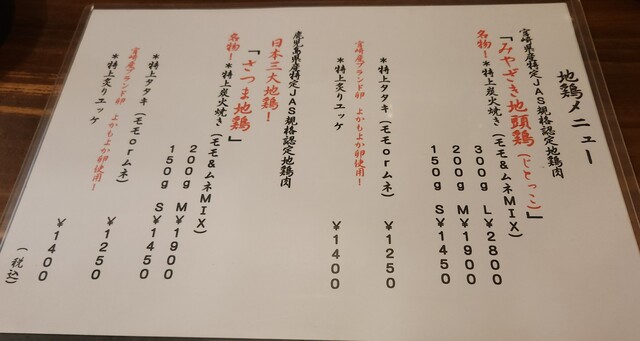 地鶏メニュー
宮崎県産特定JAS規格認定地鶏肉
「みやざき地頭鶏(じとっこ)」
名物！*特上炭火焼き(モモ&ムネMIX)
300g L¥2800
200g M¥1900
150g S¥1450
*特上タタキ(モモorムネ) ¥1250
宮崎産ブランド卵 よかもよか卵使用！
*特上炙りユッケ ¥1400
鹿児島県産特定JAS規格認定地鶏肉
日本三大地鶏！
「さつま地鶏」
名物！*特上炭火焼き(モモ&ムネMIX)
200g M¥1900
150g S¥1450
*特上タタキ(モモorムネ) ¥1250
宮崎産ブランド卵 よかもよか卵使用！
*特上炙りユッケ ¥1400
(税込)